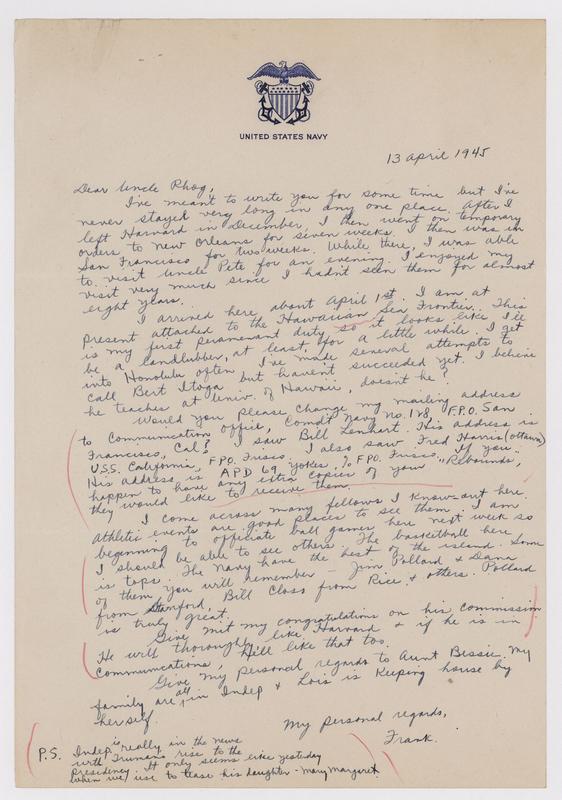 UNITED STATES NAVY
13 April 1945
Dear Uncle Phog,
I've meant to write you for some time but I've
never stayed very long in any one place. After I
left Harvard in December, I then went on temporary
orders to New Orleans for seven weeks. I then was in
San Francisco for two weeks. While there, I was able
to visit Uncle Pete for an evening. I enjoyed my
visit very much since I hadn't seen them for almost
eight years.
I arrived here about April 1st. I am at
present attached to the Hawaiian Sea Frontier. This
is my first permanent duty so it looks like I'll
be a landlubber, at least, for a little while. I get
into Honolulu often. I've made several attempts to
call Bert Itoga but haven't succeeded yet. I believe
he teaches at Univ. of Hawaii, doesn't he?
Would you please change my mailing address
to Communication office, Comdt Navy No. 128, F.P.O. San
Francisco, Cal? I saw Bill Lenhart. His address is
U.S.S. California, F.P.O. Frisco. I also saw Fred Harris (Ottawa)
His address is APD 69, Yokes, % F.P.O. Frisco. If you
happen to have any extra copies of your "Rebounds,"
they would like to receive them.
I come across many fellows I know out here.
Athletic events are good places to see them. I am
beginning to officiate ball games here next week so
I should be able to see others. The basketball here
is tops. The Navy have the best of the island. Some
of them, you will remember - Jim Pollard &
from Stanford, Bill Closs from Rice & others. Pollard
is truly great.
Give Mit my congratulations on his commission.
He will thoroughly like Harvard & if he is in
Communications, he'll like that too.
Give my personal regards to Aunt Bessie. My
family are all in Indep & Lois is keeping house by
herself.
My personal regards,
Frank.
P.S. Indep. is really in the news
with Truman's rise to the
Presidency. It only seems like yesterday
when we use to tease his daughter - Mary Margaret.